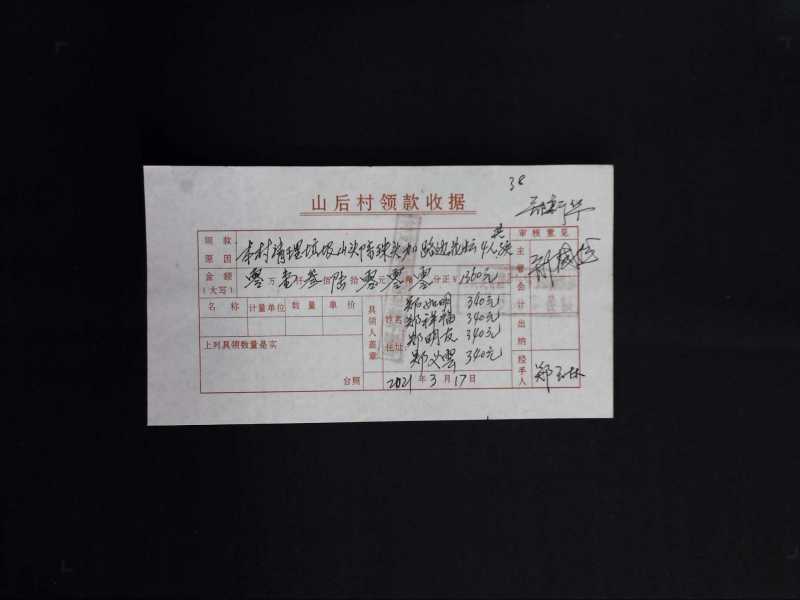 38
山后村领款收据
领款原因 本村清理垃圾山头 路边花坛4人
审核意见
金额(大写) 零万壹仟叁佰陆拾零元零角零分正¥1360元
主管
会计
名称 计量单位 数量 单价
具领人盖章
姓名
住址
郑如明 340元
郑祥福 340元
郑明友 340元
郑义云 340元
出纳
上列具领数量是实
台照
2021年3月17日
经手人 郑玉林